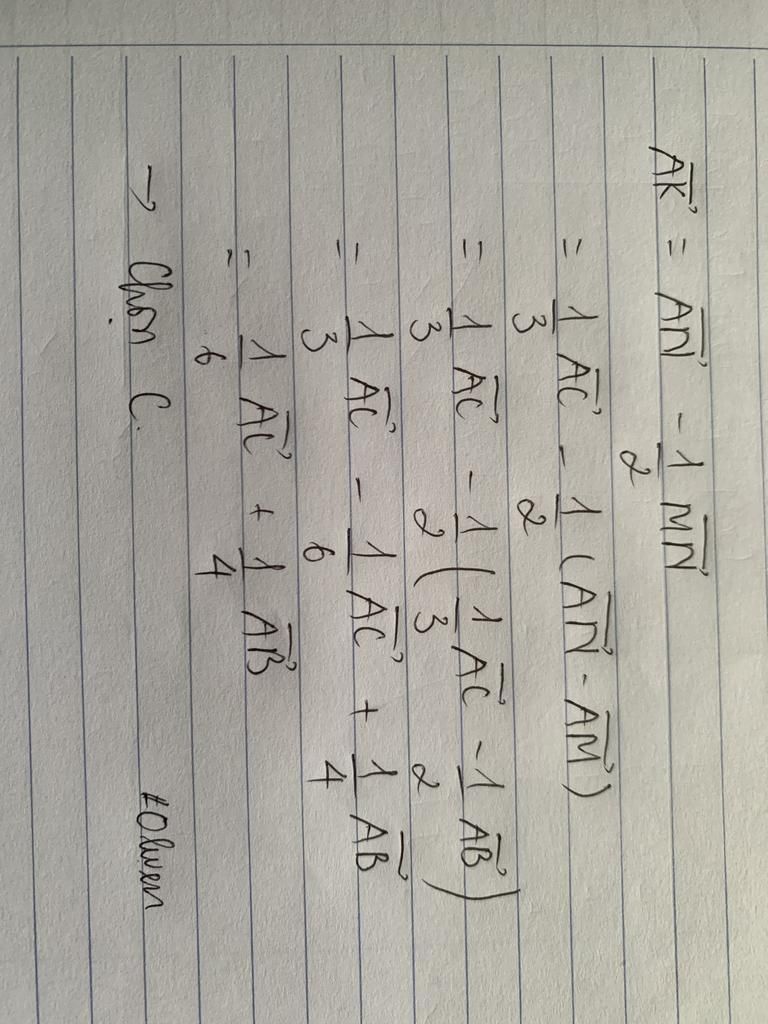 AK⃗ = AN⃗ - 1/2 MN⃗
= 1/3 AC⃗ - 1/2 (AN⃗ - AM⃗)
= 1/3 AC⃗ - 1/2 (1/3 AC⃗ - 1/2 AB⃗)
= 1/3 AC⃗ - 1/6 AC⃗ + 1/4 AB⃗
= 1/6 AC⃗ + 1/4 AB⃗
→ Chọn C.